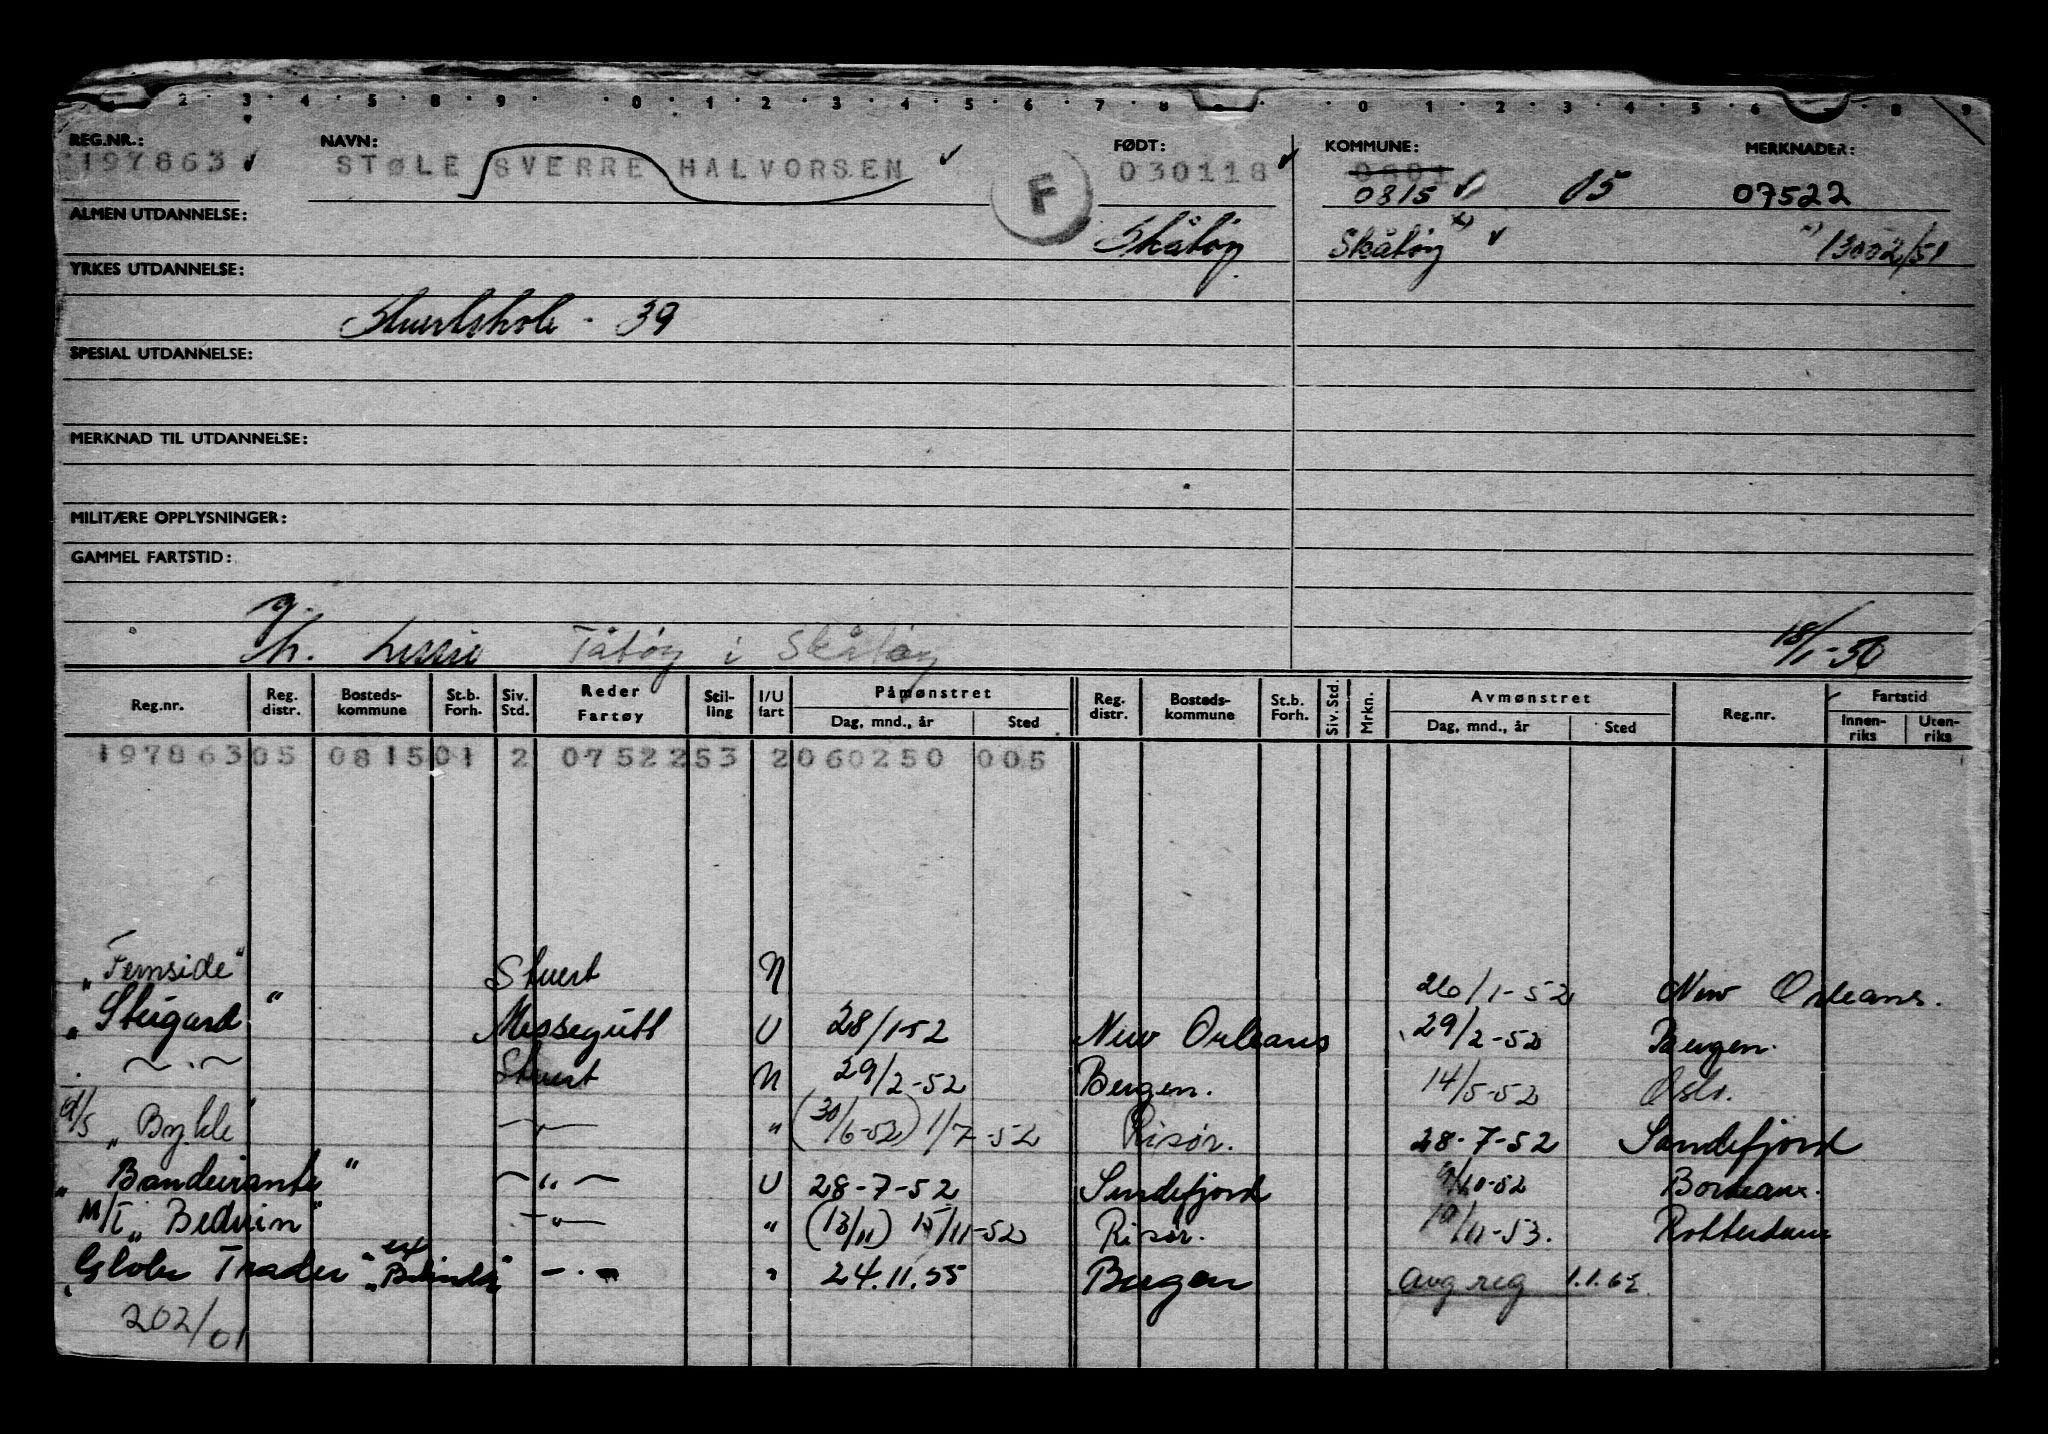 2 3 4 5 8 9 0 1 2 3 4 5 6 7 8 9 0 1 2 3 4 5 6 7 8 9
REG.NR.: NAVN: FØDT: KOMMUNE: MERKNADER:
197863 STØLE SVERRE HALVORSEN F 030118 0801
0815 05 07522
ALMEN UTDANNELSE: Skåtøy Skåtøy 13002/51
YRKES UTDANNELSE:
Stuertskole - 39
SPESIAL UTDANNELSE:
MERKNAD TIL UTDANNELSE:
MILITÆRE OPPLYSNINGER:
GAMMEL FARTSTID:
g.
h. Lissie Tåtøy i Skåtøy 18/1-50
Reg.nr. Reg. distr. Bosteds-kommune St.b. Forh. Siv. Std. Reder Fartøy Stil-ling I/U fart Påmønstret Dag, mnd., år Sted Reg. distr. Bosteds-kommune St.b. Forh. Siv. Std. Mrkn. Avmønstret Dag, mnd., år Sted Reg.nr. Fartstid Innen-riks Uten-riks
197863 05 0815 01 2 07522 53 2 060250 005
„Fernside" Stuert N 26/1-52 New Orleans.
„Stugard" Messegutt U 28/1 52 New Orleans 29/2-52 Bergen.
~ . ~ Stuert N 29/2-52 Bergen. 14/5-52 Oslo.
d/s „Bykle" — „ — " (30/6-52) 1/7-52 Risør. 28-7-52 Sandefjord
„Bandeirante" ~ „ ~ U 28-7-52 Sandefjord 9/10-52 Bordeaux.
M/T „Beduin" — „ — " (13/11) 15/11-52 Risør. 19/11-53. Rotterdam
„Globe Trader" ex „Belinda" — . — " 24.11.55 Bergen Avg reg 1.1.62
202/01